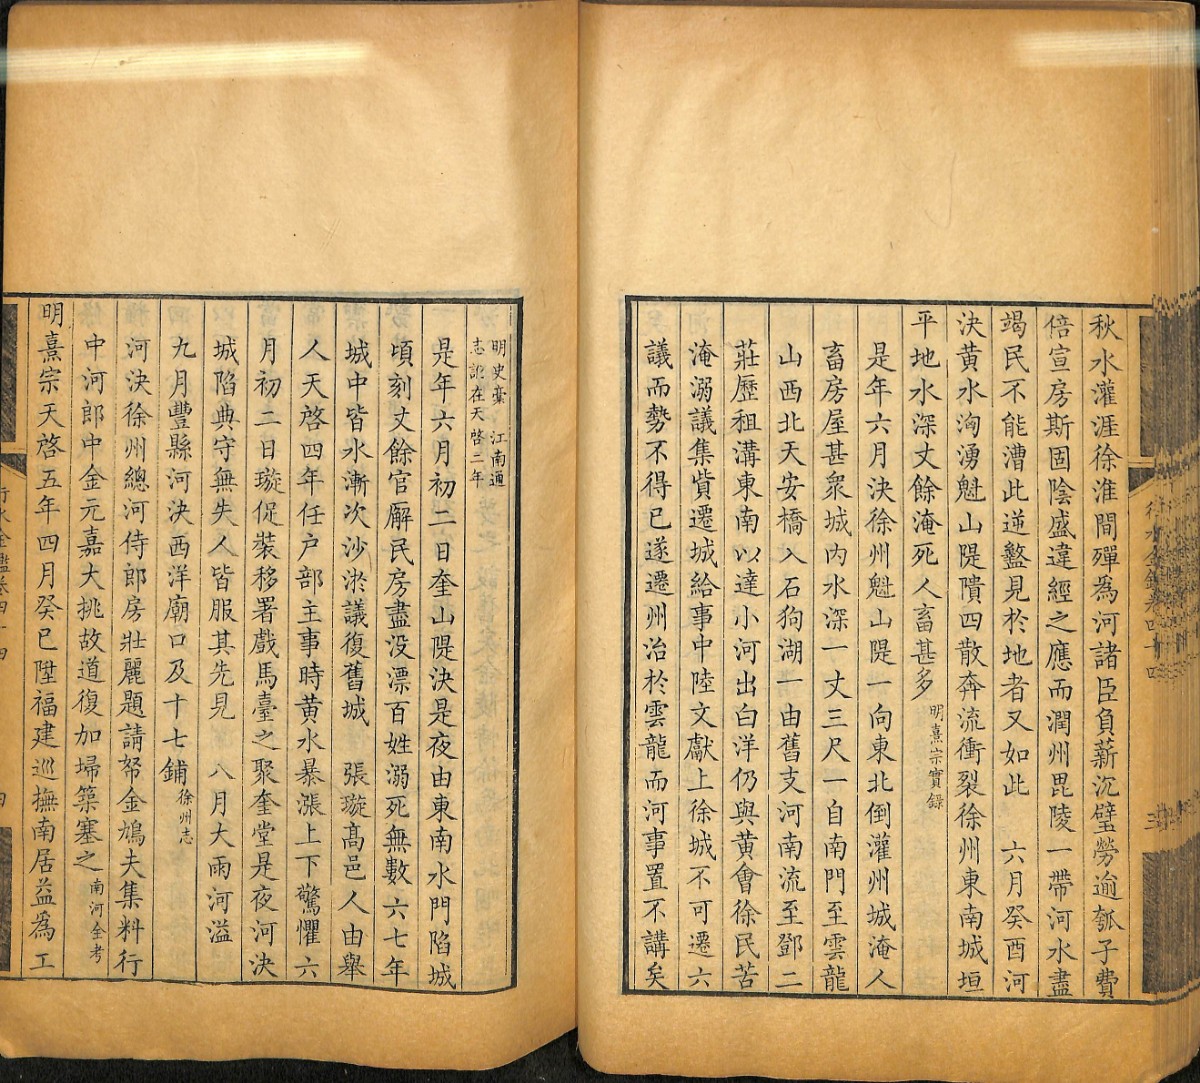 秋水灌涯徐淮間殫為河諸臣負薪沉璧勞逾瓠子費
倍宣房斯固陰盛違經之應而潤州毘陵一帶河水盡
竭民不能漕此逆盭見於地者又如此　六月癸酉河
決黄水洶湧魁山隄隤四散奔流衝裂徐州東南城垣
平地水深丈餘淹死人畜甚多明熹宗實録
是年六月決徐州魁山隄一向東北倒灌州城淹人
畜房屋甚衆城内水深一丈三尺一自南門至雲龍
山西北天安橋入石狗湖一由舊支河南流至鄧二
莊歷租溝東南以達小河出白洋仍與黄會徐民苦
淹溺議集貲遷城給事中陸文獻上徐城不可遷六
議而勢不得已遂遷州治於雲龍而河事置不講矣
明史稾　江南通
志訛在天啓二年
是年六月初二日奎山隄決是夜由東南水門陷城
頃刻丈餘官廨民房盡没漂百姓溺死無數六七年
城中皆水漸次沙淤議復舊城　張璇高邑人由舉
人天啓四年任户部主事時黄水暴漲上下驚懼六
月初二日璇促裝移署戲馬臺之聚奎堂是夜河決
城陷典守無失人皆服其先見　八月大雨河溢
九月豐縣河決西洋廟口及十七鋪徐州志
河決徐州總河侍郎房壯麗題請帑金鳩夫集料行
中河郎中金元嘉大挑故道復加埽築塞之南河全考
明熹宗天啓五年四月癸巳陞福建巡撫南居益為工
行水金鑑卷四十四
四
行水金鑑卷四十四
三